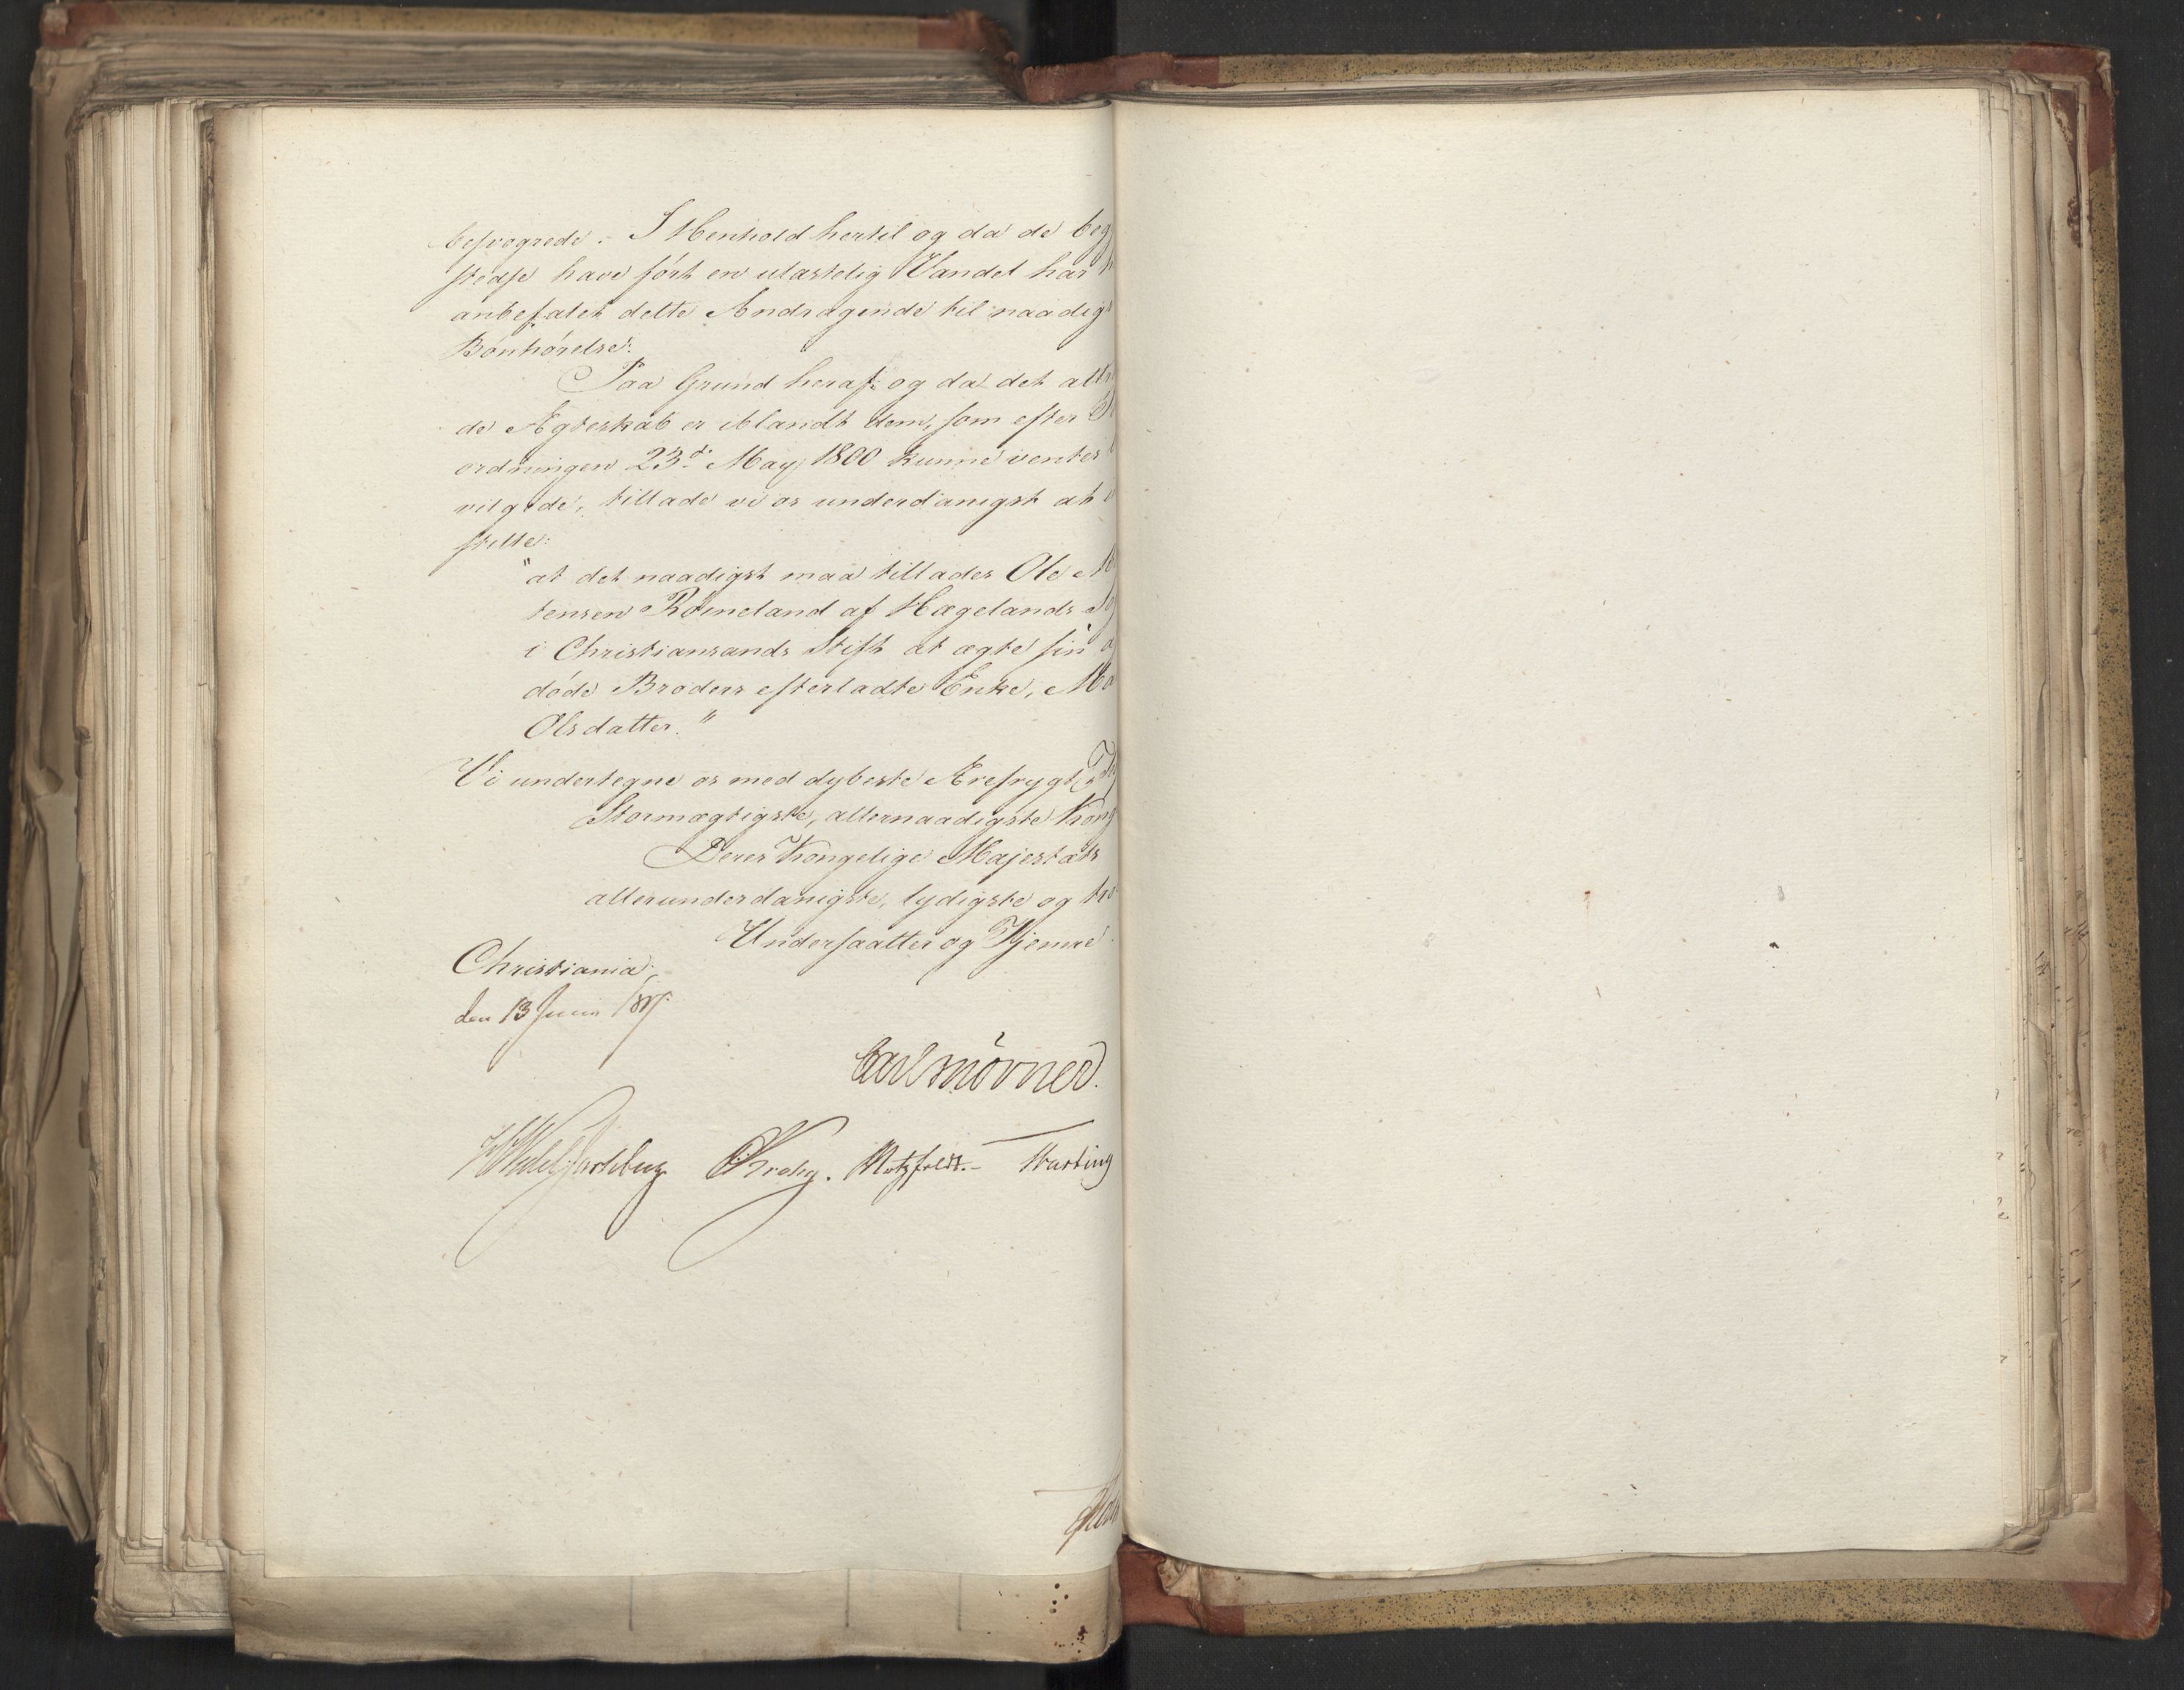 besvogrede. I Henhold hertil og da de beg
stedse have ført en ulastelig Vandel har
anbefalet dette Andragende til naadigs
Bønhørelse.
Paa Grund heraf og da det attr
de Ægteskab er iblandt dem, som efter
ordningen 23d. May 1800 kunne ventes
vilgede, tillade vi os underdanigst at
stille:
"at det naadigst maa tillades Ole
tensen Røineland af Hægelands So
i Christiansands Stift at ægte sin a
døde Broders efterladte Enke, Ma
Olsdatter."
Vi undertegne os med dybeste Ærefrygt,
Stormægtigste, allernaadigste Kong
Deres Kongelige Majestæts
allerunderdanigste, lydigste og tro
Undersaatter og Tjenere
Christiania
den 13 Junii 1817.
Carl Mörner.
Krohg. Motzfeldt. -